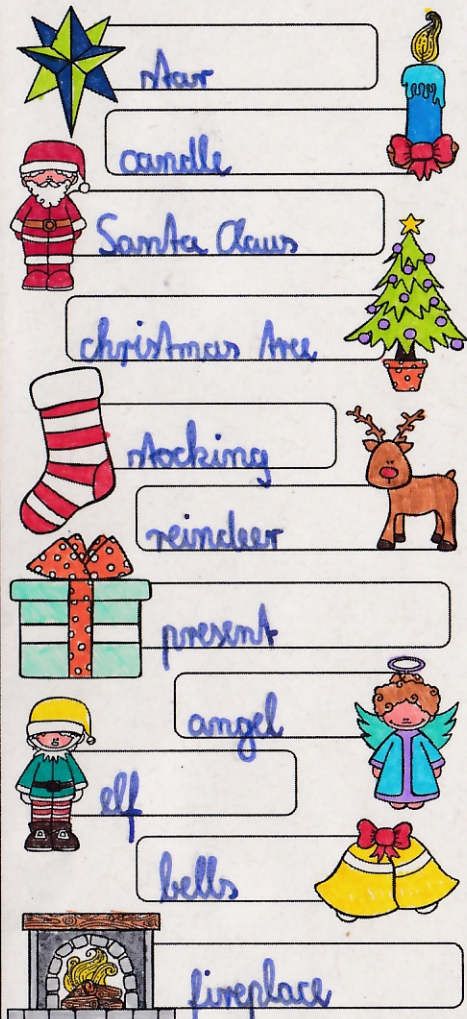 star
candle
Santa Claus
christmas tree
stocking
reindeer
present
angel
elf
bells
fireplace